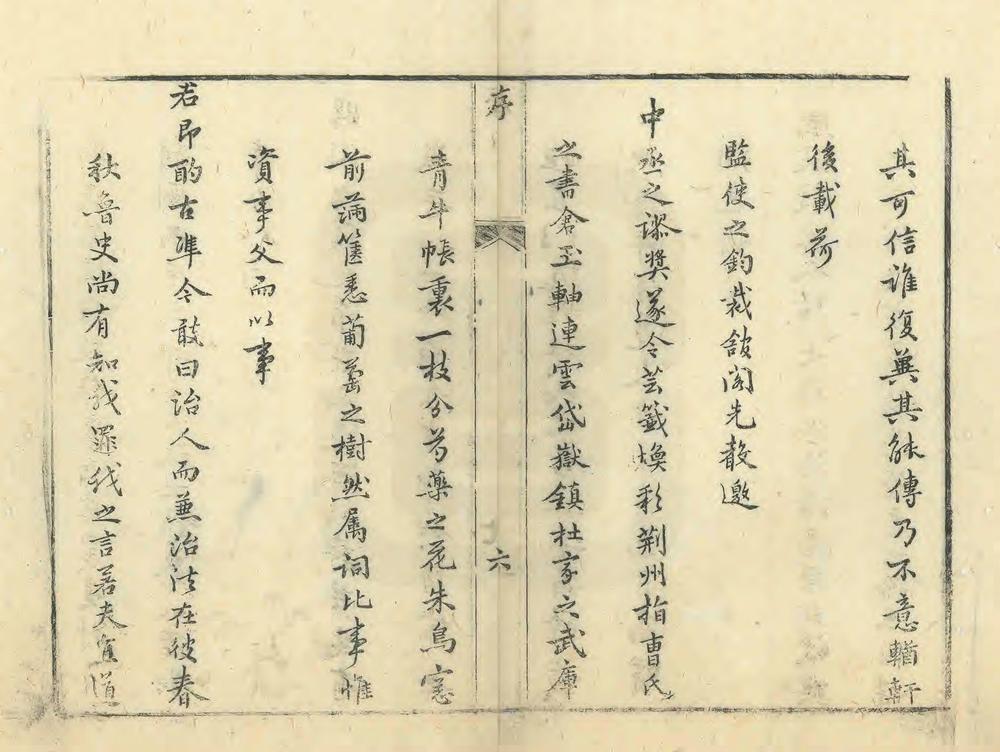 其可信誰復冀其能傳乃不意輶軒
後載荷
監使之鈞裁舘閣先聲邀
中丞之謬獎遂令芸籤煥彩荊州指曹氏
之書倉玉軸連雲岱嶽鎮杜家之武庫
序
六
青牛帳裏一枝分芍藥之花朱鳥窓
前滿篋悉葡萄之樹然属詞比事惟
資事父而以事
君即酌古準今敢曰治人而兼治法在彼春
秋魯史尚有知我罪我之言若夫宣道